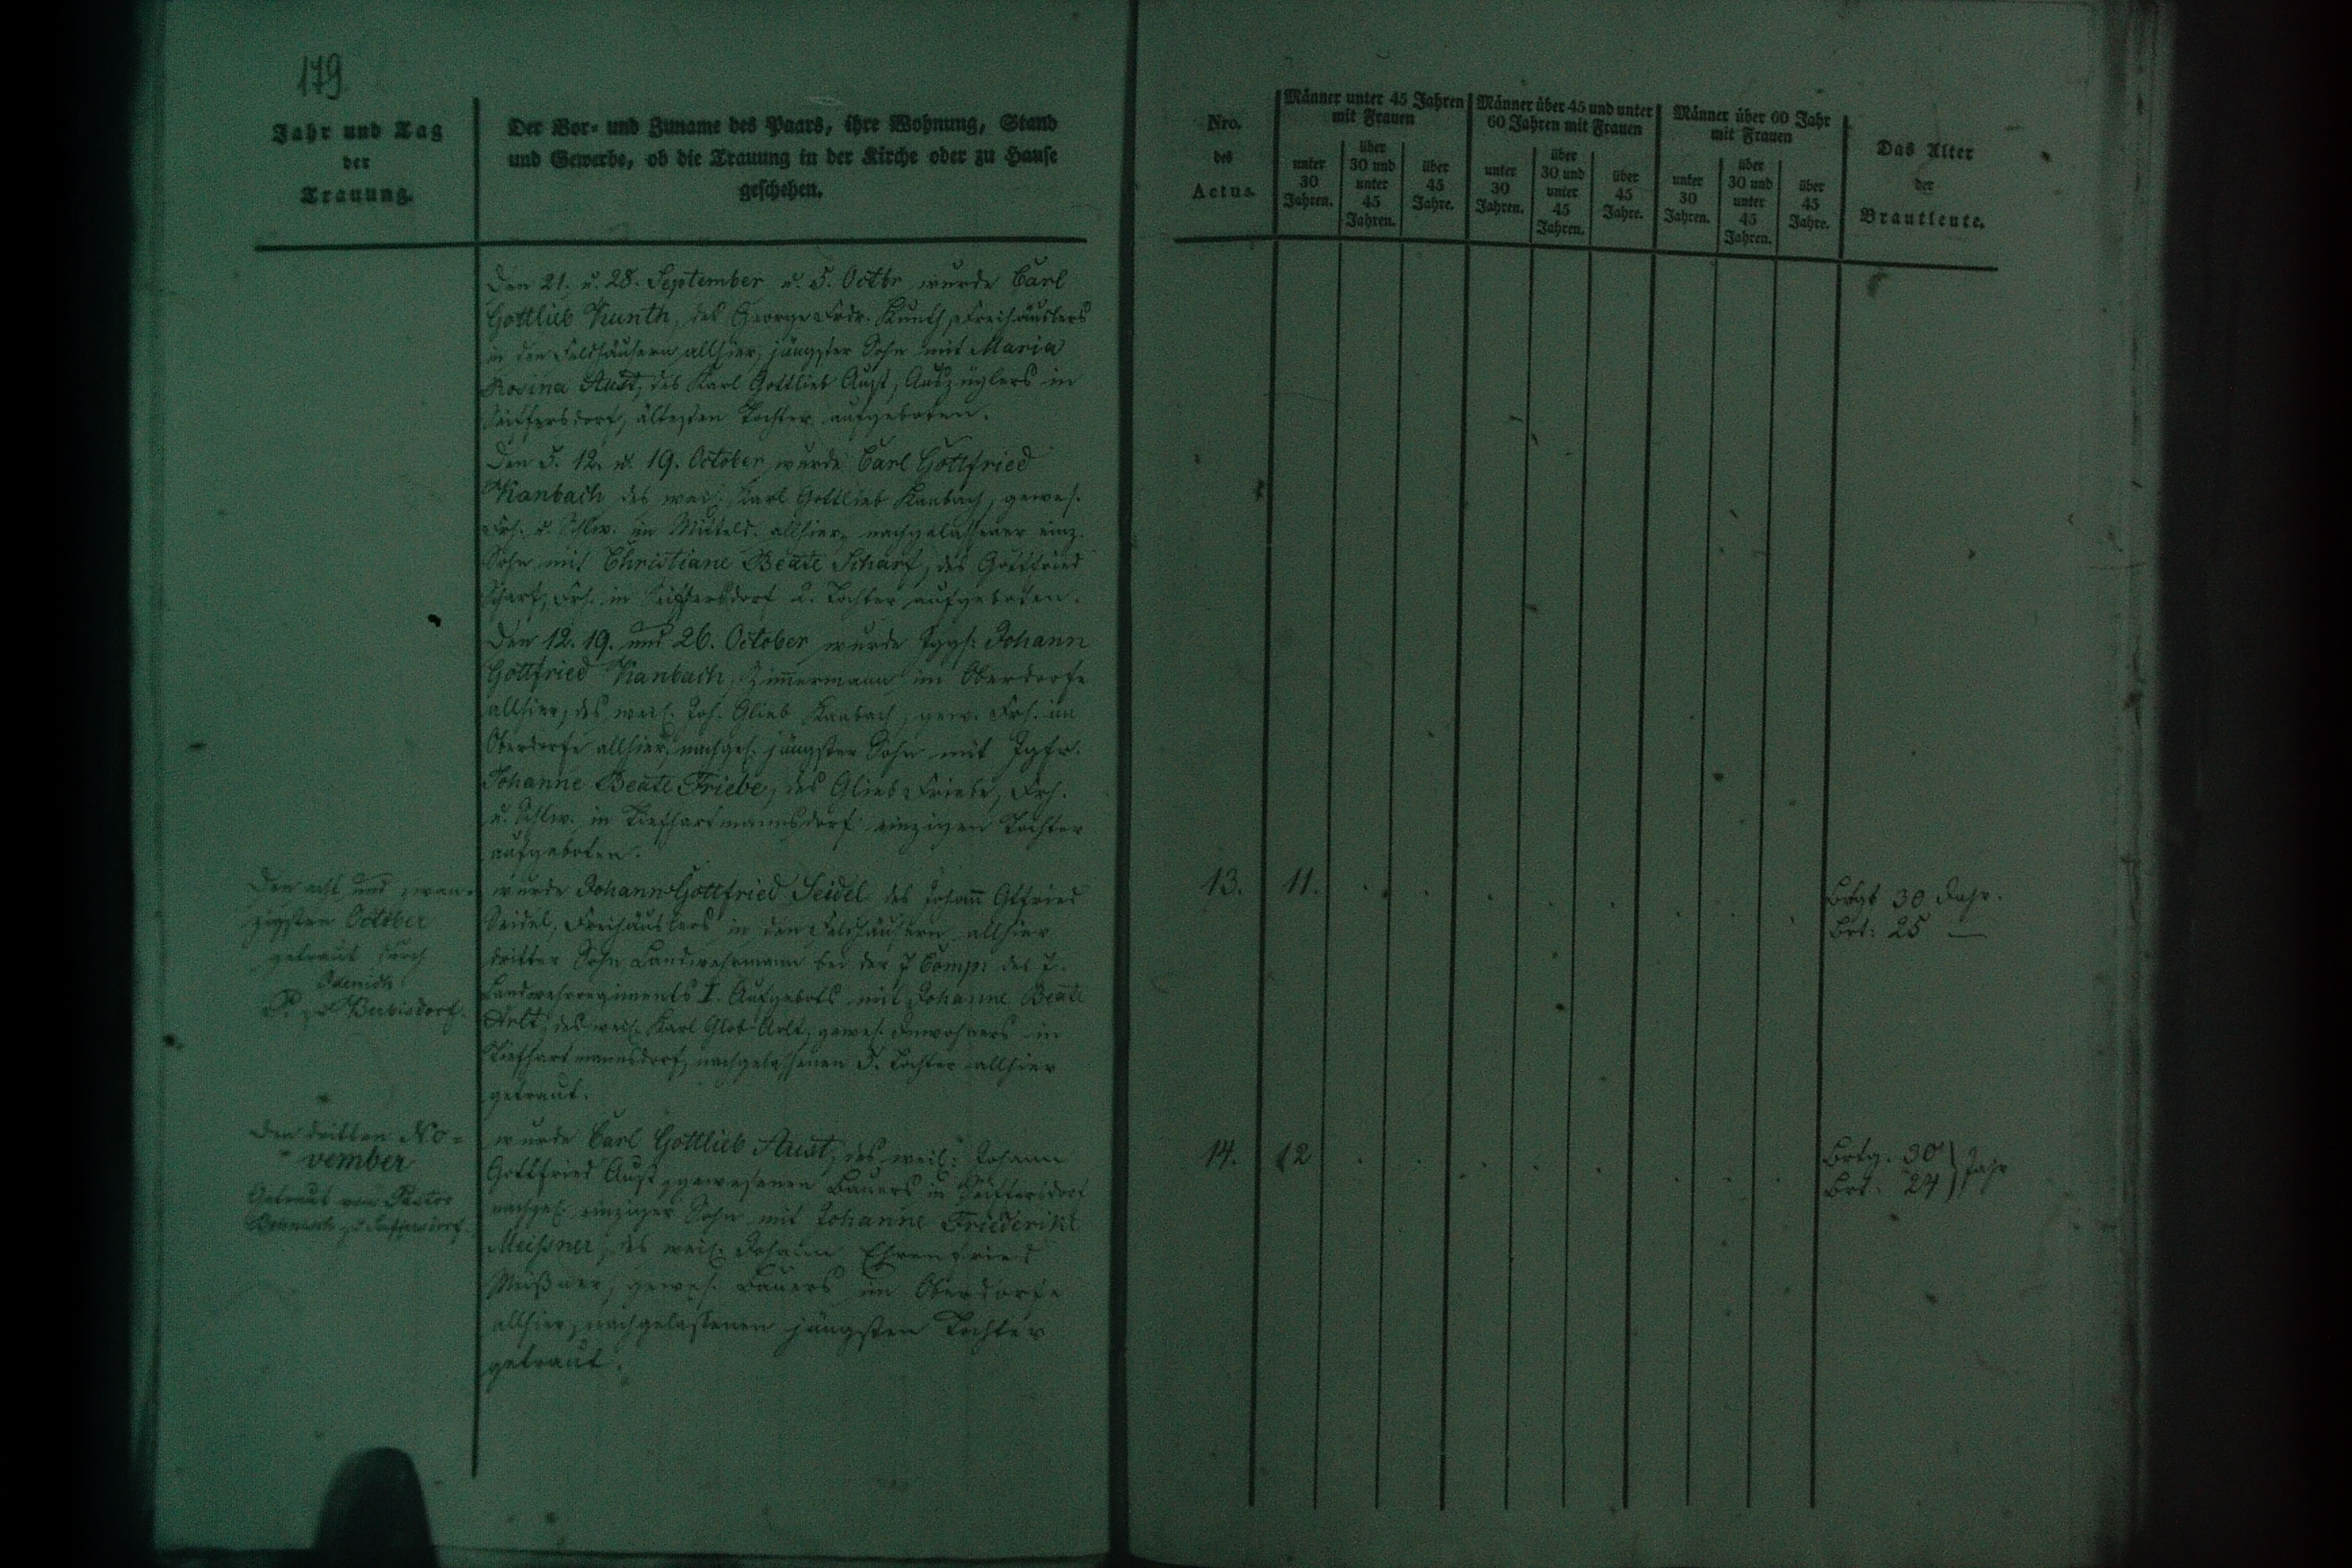 179
Jahr und Tag
der
Trauung.
Der Vor- und Zuname des Paars, ihre Wohnung, Stand
und Gewerbe, ob die Trauung in der Kirche oder zu Hause
geschehen.
Den 21. u. 28. September u. 5. Octbr wurde Carl
Gottlieb Kunth, des George Frdr. Kunth, Freihäuslers
in den Feldhäusern allhier, jüngster Sohn mit Maria
Rosina Aust, des Karl Gottlieb Aust, Auszüglers in
Seiffersdorf, ältesten Tochter aufgeboten.
Den 5. 12. u. 19. October wurde Carl Gottfried
Kanbach des weil. Karl Gottlieb Kanbach, gewes.
Frh. u. Schlw. im Mitteld. allhier, nachgelassener einz.
Sohn mit Christiane Beate Scharf, des Gottfried
Scharf, Frh. in Seiffersdorf 2. Tochter aufgeboten.
Den 12. 19. und 26. October wurde Iggs: Johann
Gottfried Kanbach, Zimmermann im Oberdorfe
allhier, des weil. Joh. Glieb Kanbach, gew. Frh. im
Oberdorfe allhier, nachgel. jüngster Sohn mit Jgfr.
Johanne Beate Friebe, des Glieb Friebe, Frh.
u. Schlw. in Tiefhartmannsdorf einzigen Tochter
aufgeboten.
Den acht und zwan-
zigsten October
getraut durch
P. zu Berbisdorf.
wurde Johann Gottfried Seidel des Johann Gfried
Seidel, Freihäuslers in den Feldhäusern allhier
dritter Sohn Landwehrmann bei der 7 Comp: des 7.
Landwehrregiments I. Aufgebots mit Johanne Beate
Arlt, des weil. Karl Glob Arlt, gewes. Inwohners in
Tiefhartmannsdorf, nachgelassenen 3. Tochter allhier
getraut.
Den dritten No-
vember
Getraut von Pastor
zu Seiffersdorf.
wurde Carl Gottlieb Aust, des weil: Johann
Gottfried Aust, gewesenen Bauers in Seiffersdorf
nachgel. einziger Sohn mit Johanne Friederike
Meißner, des weil. Johann Ehrenfried
Meißner, gewes. Bauers im Oberdorfe
allhier, nachgelassenen jüngsten Tochter
getraut.
Nro.
des
Actus.
Männer unter 45 Jahren
mit Frauen
unter
30
Jahren.
über
30 und
unter
45
Jahren.
über
45
Jahre.
Männer über 45 und unter
60 Jahren mit Frauen
unter
30
Jahren.
über
30 und
unter
45
Jahren.
über
45
Jahre.
Männer über 60 Jahr
mit Frauen
unter
30
Jahren.
über
30 und
unter
45
Jahren.
über
45
Jahre.
Das Alter
der
Brautleute.
13. 11. Brtgt 30 Jahr.
Brt: 25 —
14. 12 Brtg. 30
Brt. 24 } Jahr